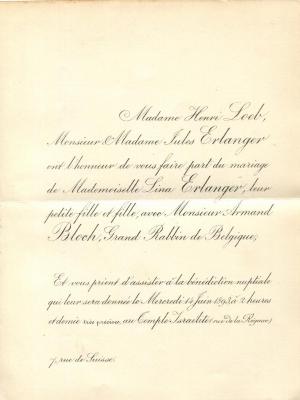 Madame Henri Loeb,
Monsieur & Madame Jules Erlanger
ont l'honneur de vous faire part du mariage
de Mademoiselle Lina Erlanger, leur
petite fille et fille, avec Monsieur Armand
Bloch, Grand Rabbin de Belgique,
Et vous prient d'assister à la bénédiction nuptiale
qui leur sera donnée le Mercredi 14 Juin 1893 à 2 heures
et demie très précises, au Temple Israélite (rue de la Régence)
7, rue de Suisse.